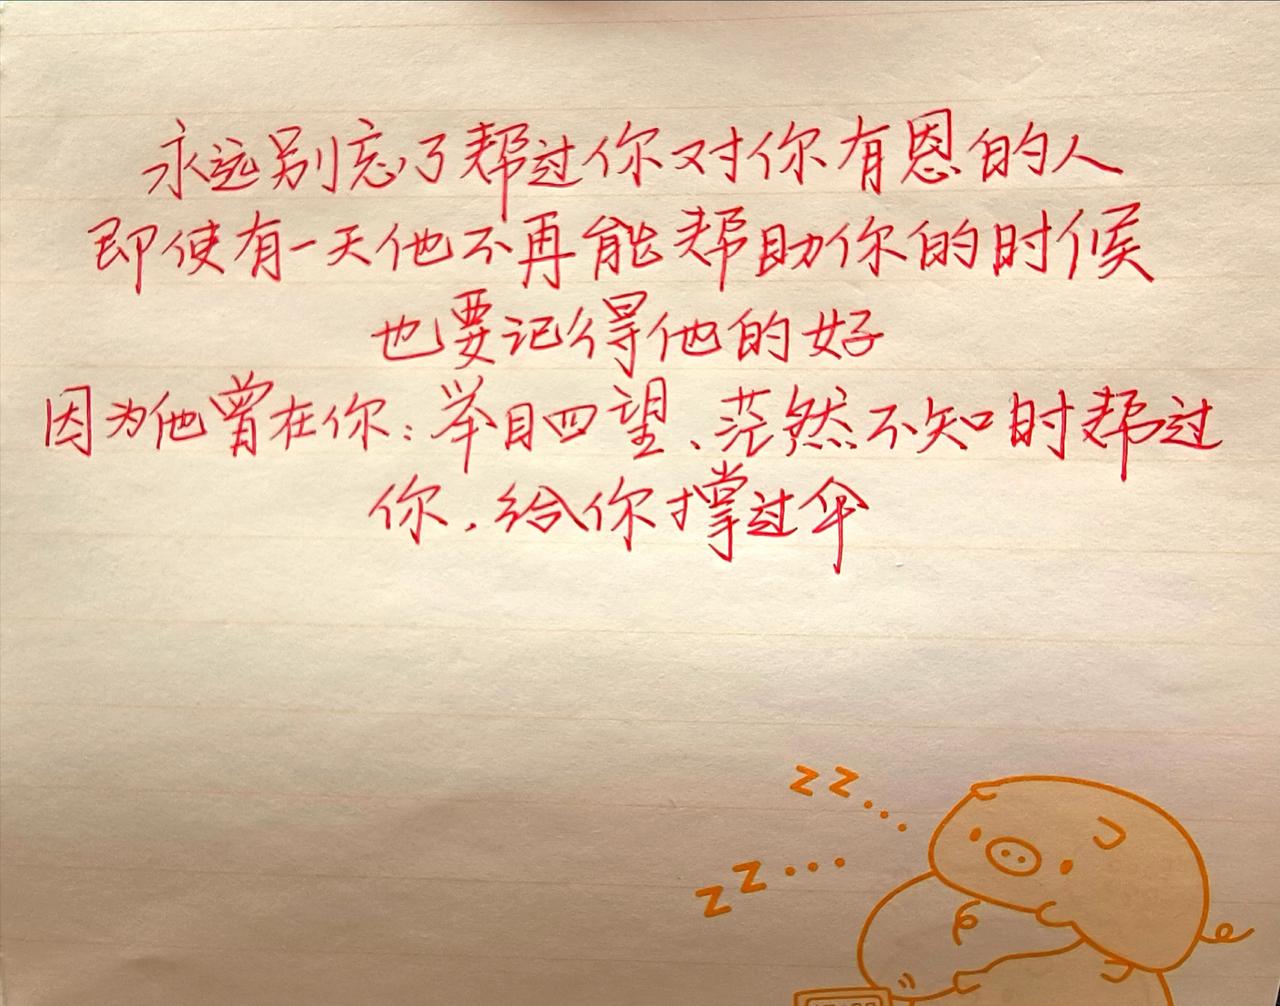 永远别忘了帮过你对你有恩的人
即使有一天他不再能帮助你的时候
也要记得他的好
因为他曾在你：举目四望、茫然不知时帮过
你，给你撑过伞
zz...
zz...